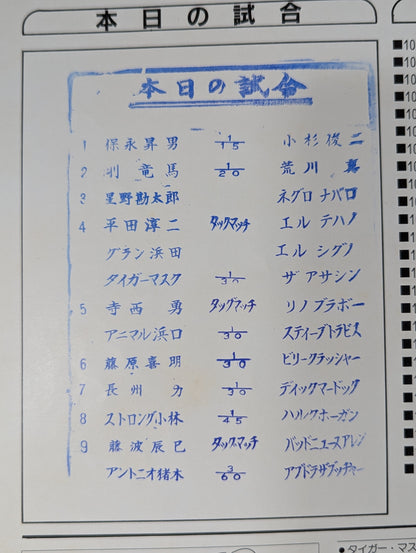 本日の試合
本日の試合
1 保永昇男 1/15 小杉俊二
2 剛竜馬 1/20 荒川真
3 星野勘太郎 ネグロナバロ
4 平田淳二 タッグマッチ エルテハノ
グラン浜田 エルシグノ
タイガーマスク 1/30 ザアサシン
5 寺西勇 タッグマッチ リノブラボー
アニマル浜口 1/30 スティーブトラビス
6 藤原喜明 1/30 ビリークラッシャー
7 長州力 1/30 ディックマードック
8 ストロング小林 1/45 ハルクホーガン
9 藤波辰巳 タッグマッチ バッドニュースアレン
アントニオ猪木 3/60 アブドラザブッチャー
■10
■10
■10
■10
■10
■10
■10
■10
● タイガー・マス